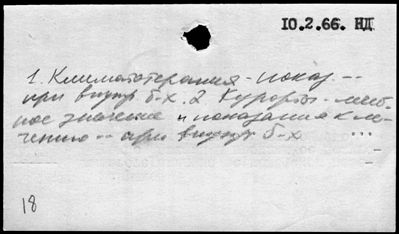 10.2.66. НД
1. Климатотерапия - показ. --
при внутр б-х. 2 Курорты - лечеб
ное значение и показания к ле-
чению -- при внутр б-х ...
18